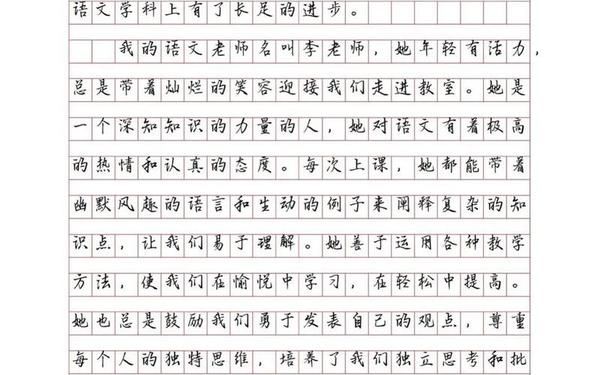 语文学科上有了长足的进步。
我的语文老师名叫李老师，她年轻有活力，
总是带着灿烂的笑容迎接我们走进教室。她是
一个深知知识的力量的人，她对语文有着极高
的热情和认真的态度。每次上课，她都能带着
幽默风趣的语言和生动的例子来阐释复杂的知
识点，让我们易于理解。她善于运用各种教学
方法，使我们在愉悦中学习，在轻松中提高。
她也总是鼓励我们勇于发表自己的观点，尊重
每个人的独特思维，培养了我们独立思考和批